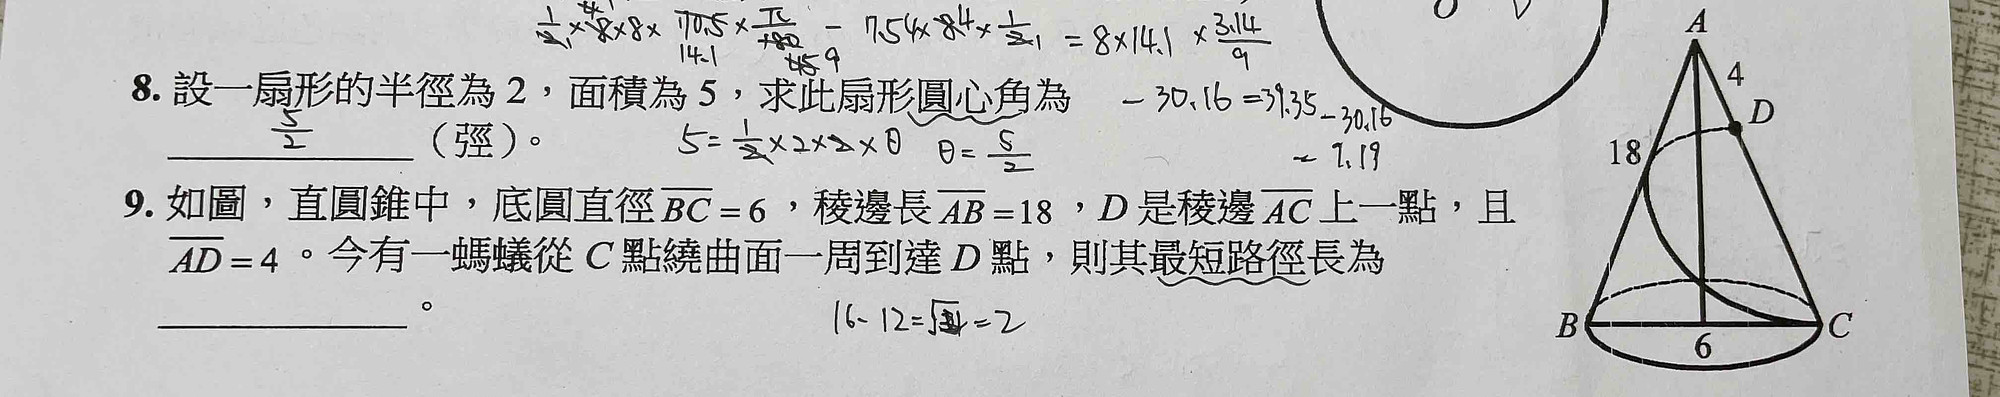 1/2 × 8 × 8 × 70.5 × π/180 - 7.54 × 8.4 × 1/2 = 8 × 14.1 × 3.14/9
14.1
9
O
8. 設一扇形的半徑為 2，面積為 5，求此扇形圓心角為
- 30.16 = 39.35 - 30.16
5/2 （弳）。
5 = 1/2 × 2 × 2 × θ θ = 5/2
= 9.19
9. 如圖，直圓錐中，底圓直徑 BC = 6，稜邊長 AB = 18，D 是稜邊 AC 上一點，且
AD = 4。今有一螞蟻從 C 點繞曲面一周到達 D 點，則其最短路徑長為
。
16 - 12 = = 2
A
4
D
18
B
6
C